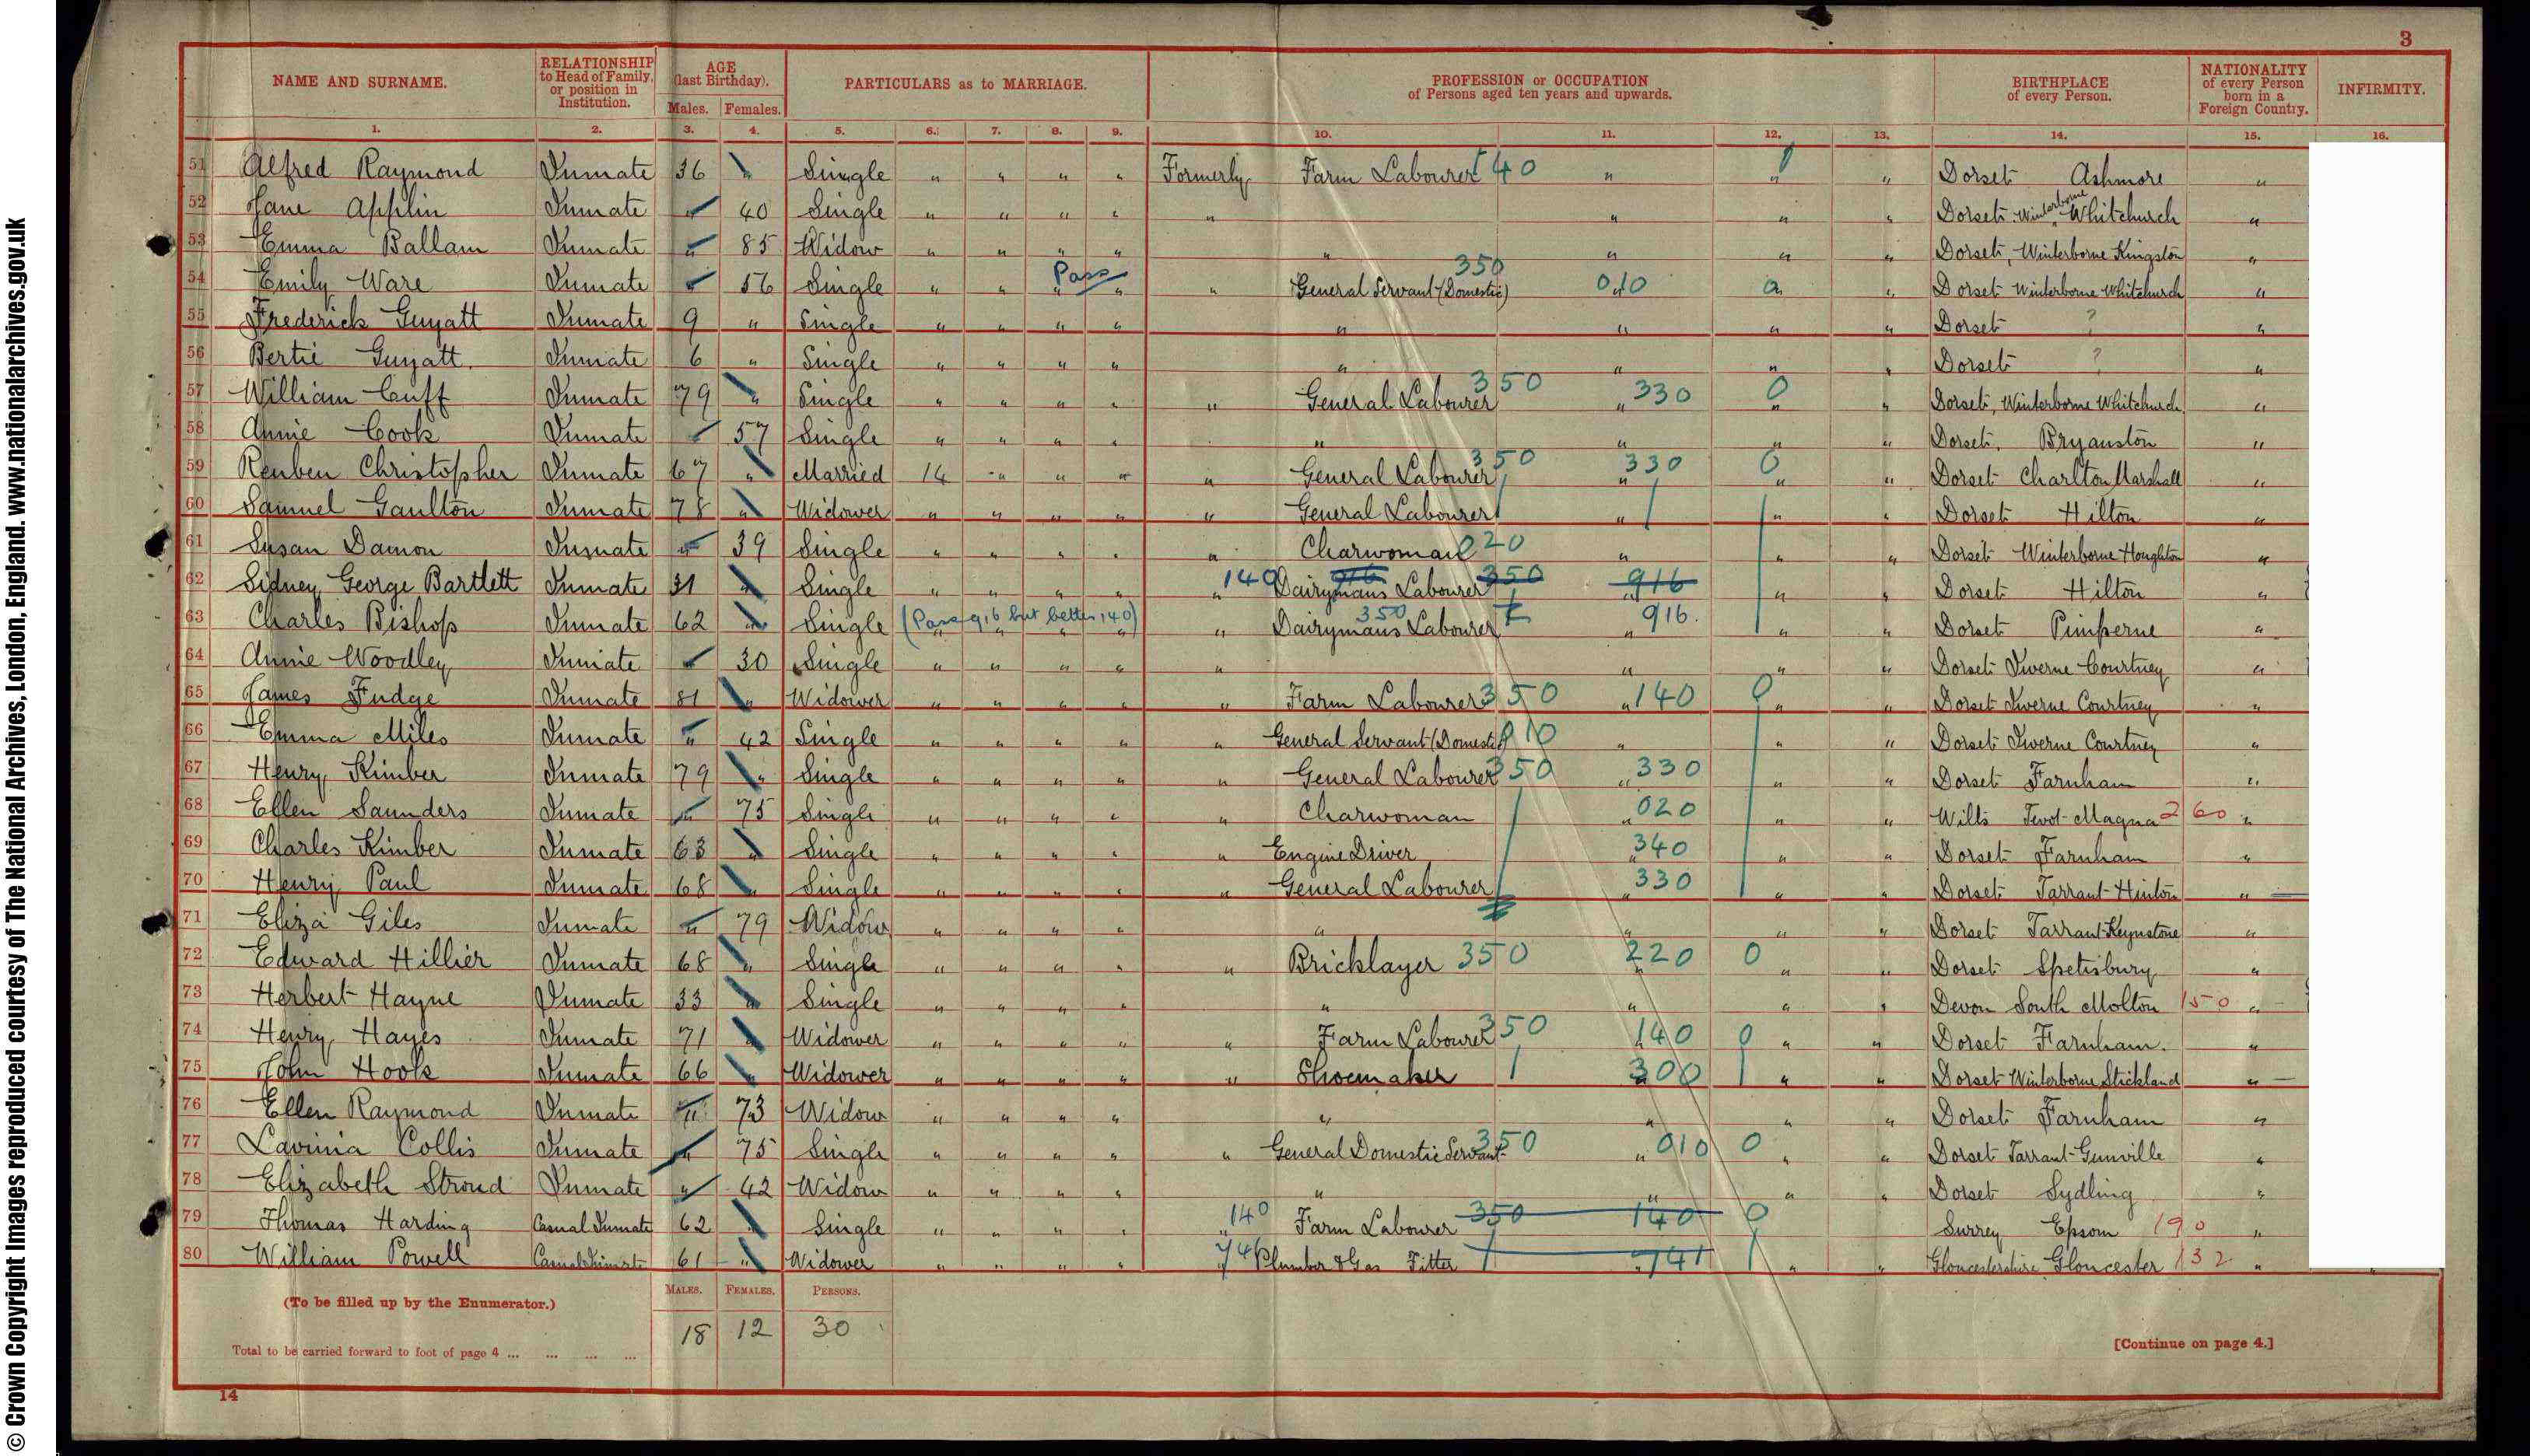 © Crown Copyright Images reproduced courtesy of The National Archives, London, England. www.nationalarchives.gov.uk
3
NAME AND SURNAME. RELATIONSHIP to Head of Family, or position in Institution. AGE (last Birthday). Males. Females. PARTICULARS as to MARRIAGE. PROFESSION or OCCUPATION of Persons aged ten years and upwards. BIRTHPLACE of every Person. NATIONALITY of every Person born in a Foreign Country. INFIRMITY.
1. 2. 3. 4. 5. 6. 7. 8. 9. 10. 11. 12. 13. 14. 15. 16.
51 Alfred Raymond Inmate 36 " Single " " " " Formerly Farm Labourer 140 " " " Dorset Ashmore "
52 Jane Applin Inmate " 40 Single " " " " " " " " Dorset Winterborne Whitchurch "
53 Emma Ballam Inmate " 85 Widow " " " " " " " " Dorset, Winterborne Kingston "
54 Emily Ware Inmate " 56 Single " " Pass " " " General Servant (Domestic) 350 010 " " Dorset Winterborne Whitchurch "
55 Frederick Guyatt Inmate 9 " Single " " " " " " " " Dorset ? "
56 Bertie Guyatt. Inmate 6 " Single " " " " " " " " Dorset ? "
57 William Cuff Inmate 79 " Single " " " " " General Labourer 350 " 330 0 " " Dorset, Winterborne Whitchurch "
58 Annie Cook Inmate " 57 Single " " " " " " " " Dorset, Bryanston "
59 Reuben Christopher Inmate 67 " Married 14 " " " " General Labourer 350 " 330 0 " " Dorset Charlton Marshall "
60 Samuel Gaulton Inmate 78 " Widower " " " " " General Labourer " " " Dorset Hilton "
61 Susan Damon Inmate " 39 Single " " " " " Charwoman 020 " " " Dorset Winterborne Houghton "
62 Sidney George Bartlett Inmate 31 " Single " " " " " 140 Dairymans Labourer 916 350 916 " " Dorset Hilton "
63 Charles Bishop Inmate 62 " Single (Pass 916 but better 140) " " " " " Dairymans Labourer 350 " 916. " " Dorset Pimperne "
64 Annie Woodley Inmate " 30 Single " " " " " " " " Dorset Iwerne Courtney "
65 James Fudge Inmate 81 " Widower " " " " " Farm Labourer 350 " 140 0 " " Dorset Iwerne Courtney "
66 Emma Miles Inmate " 42 Single " " " " " General Servant (Domestic) 010 " " " Dorset Iwerne Courtney "
67 Henry Kimber Inmate 79 " Single " " " " " General Labourer 350 " 330 " " Dorset Farnham "
68 Ellen Saunders Inmate " 75 Single " " " " " Charwoman " 020 " " Wilts Magna 260 "
69 Charles Kimber Inmate 63 " Single " " " " " Engine Driver " 340 " " Dorset Farnham "
70 Henry Paul Inmate 68 " Single " " " " " General Labourer " 330 " " Dorset Tarrant Hinton "
71 Eliza Giles Inmate " 79 Widow " " " " " " " " Dorset Tarrant Keynstone "
72 Edward Hillier Inmate 68 " Single " " " " " Bricklayer 350 " 220 0 " " Dorset Spetisbury "
73 Herbert Hayne Inmate 33 " Single " " " " " " " " Devon South Molton 150 "
74 Henry Hayes Inmate 71 " Widower " " " " " Farm Labourer 350 " 140 0 " " Dorset Farnham. "
75 John Hook Inmate 66 " Widower " " " " " Shoemaker " 300 " " Dorset Winterborne Stickland "
76 Ellen Raymond Inmate " 73 Widow " " " " " " " " Dorset Farnham "
77 Lavinia Collis Inmate " 75 Single " " " " " General Domestic Servant 350 " 010 0 " " Dorset Tarrant Gunville "
78 Elizabeth Stroud Inmate " 42 Widow " " " " " " " " Dorset Sydling "
79 Thomas Harding Casual Inmate 62 " Single " " " " " 140 Farm Labourer 350 140 0 Surrey Epsom 190 "
80 William Powell Casual Inmate 61 " Widower " " " " " 741 Plumber & Gas Fitter " 741 " " Gloucestershire Gloucester 132 "
(To be filled up by the Enumerator.) MALES. FEMALES. PERSONS.
18 12 30
Total to be carried forward to foot of page 4 ... ... ... ...
[Continue on page 4.]
14